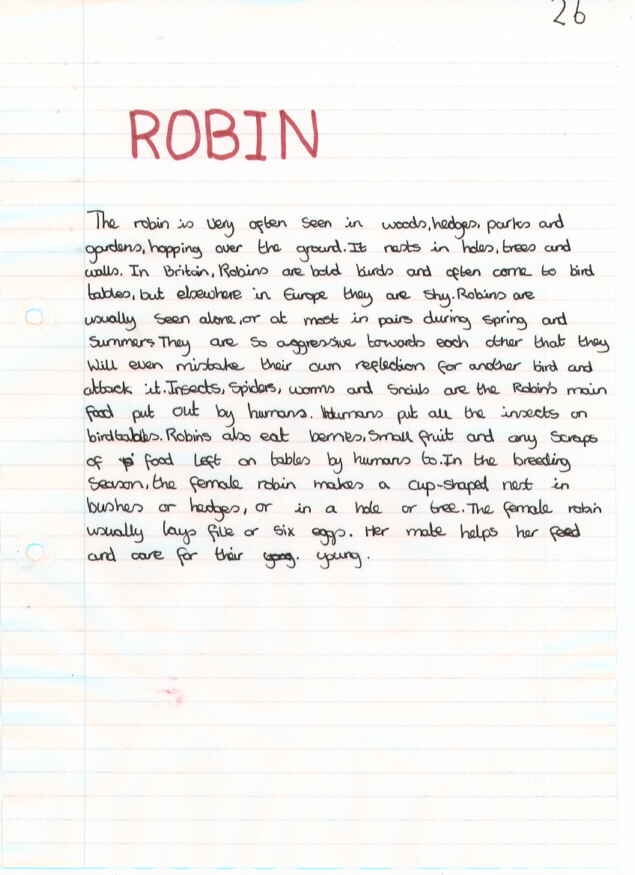 26
ROBIN
The robin is very often seen in woods, hedges, parks and
gardens, hopping over the ground. It nests in holes, trees and
walls. In Britain, Robins are bold birds and often come to bird
tables, but elsewhere in Europe they are shy. Robins are
usually seen alone, or at most in pairs during spring and
Summers They are so aggressive towards each other that they
will even mistake their own reflection for another bird and
attack it. Insects, Spiders, worms and Snails are the Robin's main
food put out by humans. Humans put all the insects on
birdtables. Robins also eat berries, Small fruit and any scraps
of food left on tables by humans to. In the breeding
Season, the female robin makes a cup-shaped nest in
bushes or hedges, or in a hole or tree. The female robin
usually lays five or six eggs. Her mate helps her feed
and care for their young. young.